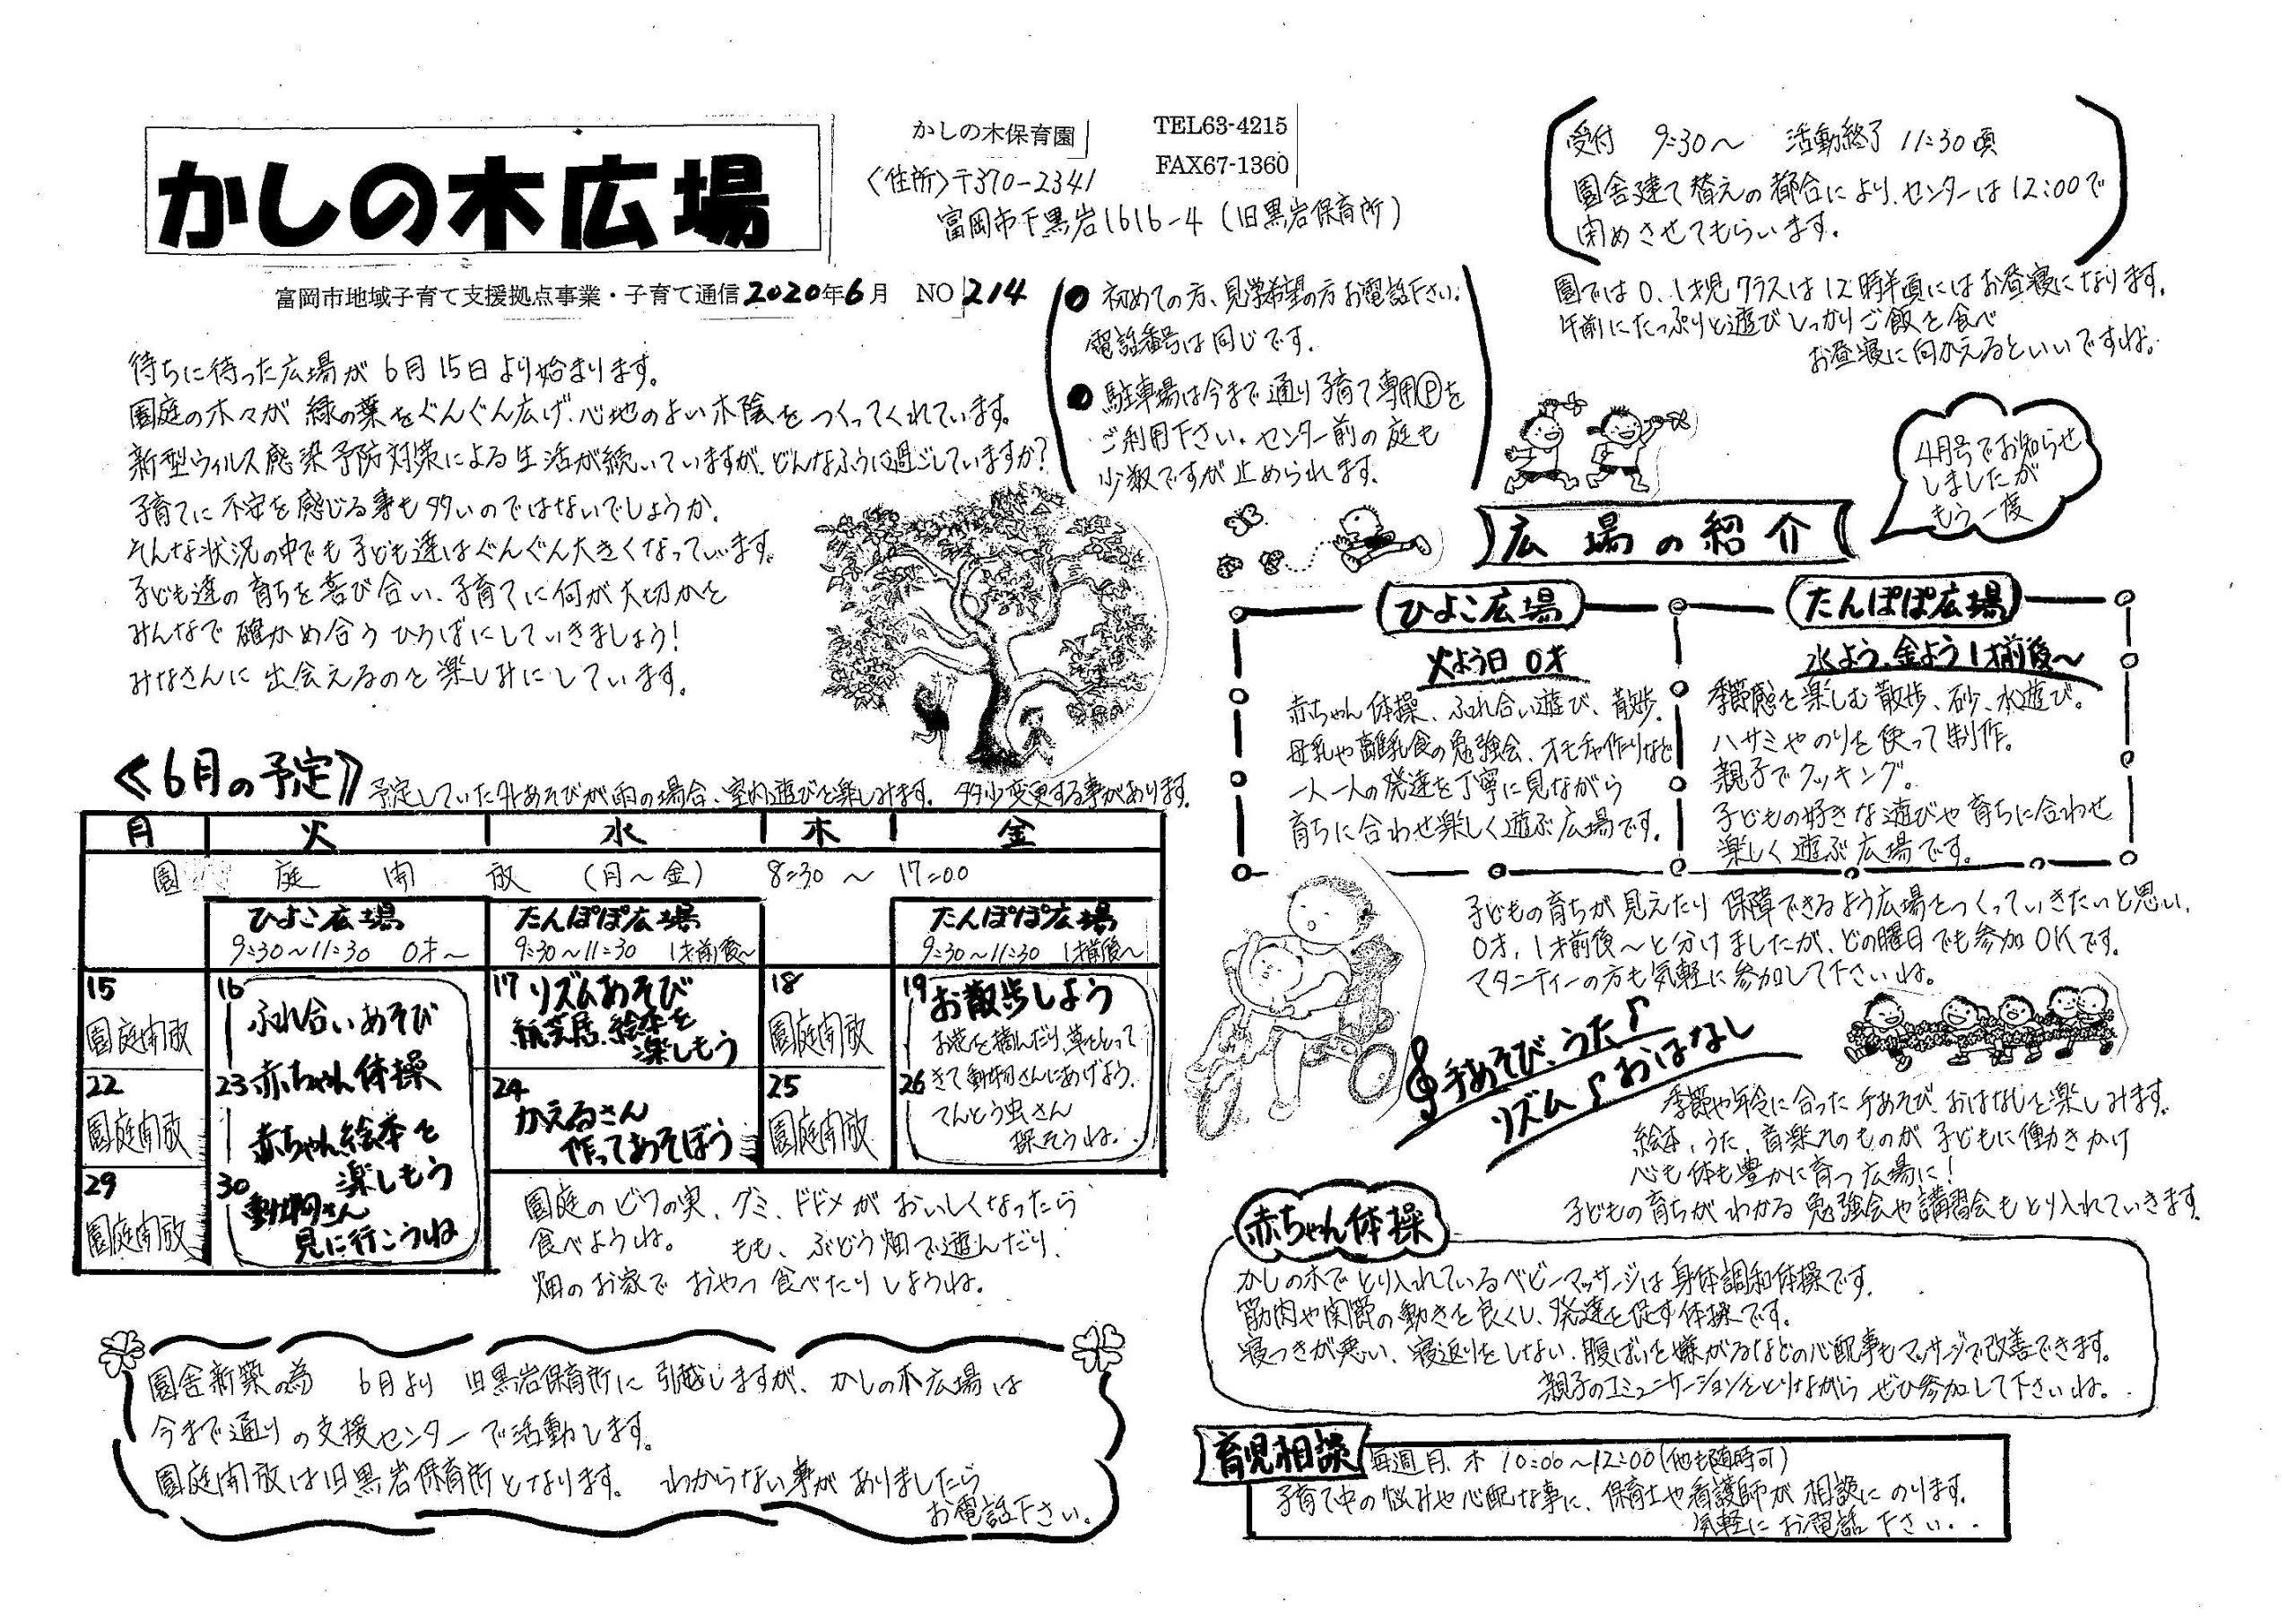 かしの木広場
かしの木保育園
TEL63-4215
FAX67-1360
〈住所〉〒370-2341
富岡市下黒岩1616-4（旧黒岩保育所）
富岡市地域子育て支援拠点事業・子育て通信 2020年6月 NO 214
待ちに待った広場が 6月15日より始まります。
園庭の木々が 緑の葉をぐんぐん広げ、心地のよい木陰をつくってくれています。
新型ウィルス感染予防対策による生活が続いていますが、どんなふうに過ごしていますか？
子育てに不安を感じる事も多いのではないでしょうか。
そんな状況の中でも子ども達はぐんぐん大きくなっています。
子ども達の育ちを喜び合い、子育てに何が大切かを
みんなで確かめ合うひろばにしていきましょう！
みなさんに出会えるのを楽しみにしています。
● 初めての方、見学希望の方お電話下さい。
電話番号は同じです。
● 駐車場は今まで通り子育て専用Ⓟを
ご利用下さい。センター前の庭も
少数ですが止められます。
受付 9:30～ 活動終了 11:30頃
園舎建て替えの都合により、センターは12:00で
閉めさせてもらいます。
園では0、1才児クラスは12時半頃にはお昼寝になります。
午前にたっぷりと遊びしっかりご飯を食べ
お昼寝に向かえるといいですね。
4月号でお知らせ
しましたが
もう一度
広場の紹介
ひよこ広場
火よう日 0才
赤ちゃん体操、ふれ合い遊び、散歩、
母乳や離乳食の勉強会、オモチャ作りなど
一人一人の発達を丁寧に見ながら
育ちに合わせ楽しく遊ぶ広場です。
たんぽぽ広場
水よう、金よう 1才前後～
季節感を楽しむ散歩、砂、水遊び。
ハサミやのりを使って制作。
親子でクッキング。
子どもの好きな遊びや育ちに合わせ
楽しく遊ぶ広場です。
子どもの育ちが見えたり保障できるよう広場をつくっていきたいと思い、
0才、1才前後～と分けましたが、どの曜日でも参加OKです。
マタニティーの方も気軽に参加して下さいね。
《6月の予定》予定していた外あそびが雨の場合、室内遊びを楽しみます。多少変更する事があります。
月 火 水 木 金
園庭開放 （月～金） 8:30～17:00
ひよこ広場
9:30～11:30 0才～
たんぽぽ広場
9:30～11:30 1才前後～
たんぽぽ広場
9:30～11:30 1才前後～
15
園庭開放
16
ふれ合いあそび
赤ちゃん体操
17 リズムあそび
紙芝居、絵本を
楽しもう
18
園庭開放
19 お散歩しよう
お花を摘んだり、草をとって
きて動物さんにあげよう。
てんとう虫さん
探そうね。
22
園庭開放
23
赤ちゃん絵本を
楽しもう
24
かえるさん
作ってあそぼう
25
園庭開放
26
29
園庭開放
30
動物さん
見に行こうね
園庭のビワの実、グミ、ドドメがおいしくなったら
食べようね。 もも、ぶどう畑で遊んだり、
畑のお家でおやつ食べたりしようね。
手あそび、うた♪
リズム♪おはなし
季節や年令に合った手あそび、おはなしを楽しみます。
絵本、うた、音楽そのものが子どもに働きかけ
心も体も豊かに育つ広場に！
子どもの育ちがわかる勉強会や講習会もとり入れていきます。
赤ちゃん体操
かしの木でとり入れているベビーマッサージは身体調和体操です。
筋肉や関節の動きを良くし、発達を促す体操です。
寝つきが悪い、寝返りをしない、腹ばいを嫌がるなどの心配事もマッサージで改善できます。
親子のコミュニケーションをとりながらぜひ参加して下さいね。
園舎新築の為 6月より 旧黒岩保育所に引越しますが、かしの木広場は
今まで通りの支援センターで活動します。
園庭開放は旧黒岩保育所となります。 わからない事がありましたら
お電話下さい。
育児相談
毎週月、木 10:00～12:00（他も随時可）
子育て中の悩みや心配な事に、保育士や看護師が相談にのります。
気軽にお電話下さい。